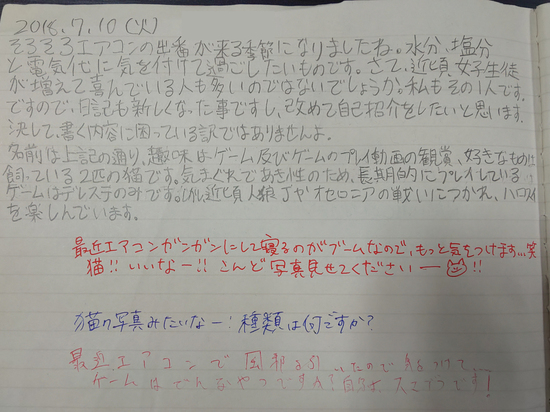 2018.7.10(火)
そろそろエアコンの出番が来る季節になりましたね。水分、塩分
と電気代に気を付けて過ごしたいものです。さて、近頃女子生徒
が増えて喜んでいる人も多いのではないでしょうか。私もその1人です。
ですので、日記も新しくなった事ですし、改めて自己紹介をしたいと思います。
決して、書く内容に困っている訳ではありませんよ。
名前は上記の通り、趣味はゲーム及びゲームのプレイ動画の観賞、好きなものは
飼っている2匹の猫です。気まぐれであき性のため、長期的にプレイしている
ゲームはデレステのみです。しかし近頃人狼Jやオセロニアの戦いにつかれ、ハロライ
を楽しんでいます。
最近エアコンガンガンにして寝るのがブームなので、もっと気をつけます…笑
猫!! いいなー!! こんど写真見せてくださいー!!
猫の写真みたいなー!種類は何ですか?
最近エアコンで風邪を引いたので気をつけて
ゲームはどんなやつですか?自分は スマブラです!